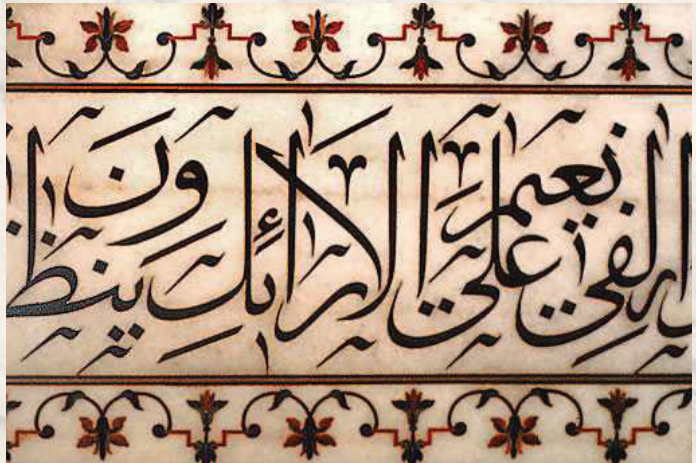 لَفِي نَعِيمٍ عَلَى الْأَرَائِكِ يَنْظُرُونَ